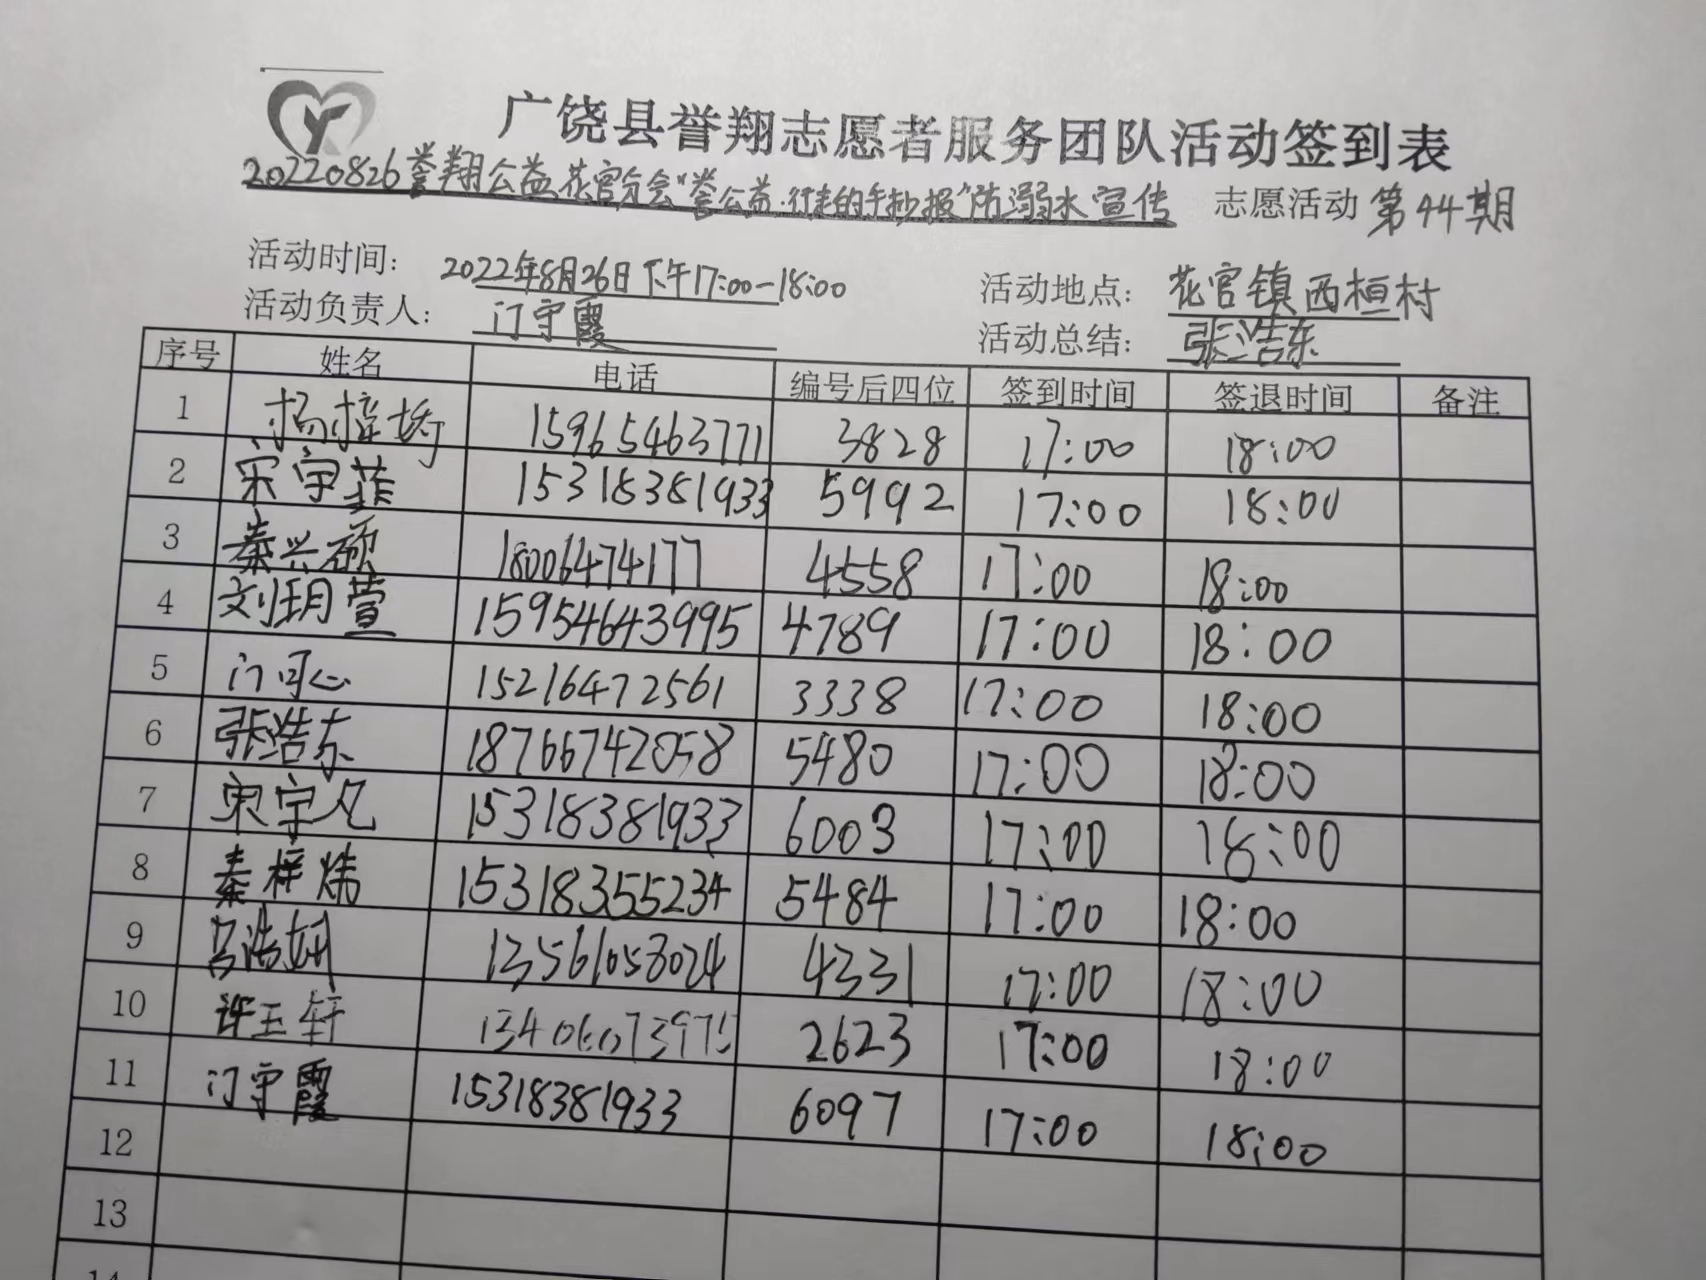 广饶县誉翔志愿者服务团队活动签到表
20220826誉翔公益花官分会“誉公益·行走的手抄报”防溺水宣传 志愿活动 第44期
活动时间: 2022年8月26日下午17:00-18:00 活动地点: 花官镇西桓村
活动负责人: 门守霞 活动总结: 张浩东
序号 姓名 电话 编号后四位 签到时间 签退时间 备注
1 杨梓 15965463771 3828 17:00 18:00
2 宋宇菲 15318381933 5992 17:00 18:00
3 秦兴硕 18006474177 4558 17:00 18:00
4 刘玥萱 15954643995 4789 17:00 18:00
5 门可心 15216472561 3338 17:00 18:00
6 张浩东 18766742058 5480 17:00 18:00
7 宋宇凡 15318381933 6003 17:00 18:00
8 秦梓炜 15318355234 5484 17:00 18:00
9 浩妍 13561058024 4331 17:00 18:00
10 许玉轩 2623 17:00 18:00
11 门守霞 15318381933 6097 17:00 18:00
12
13
14